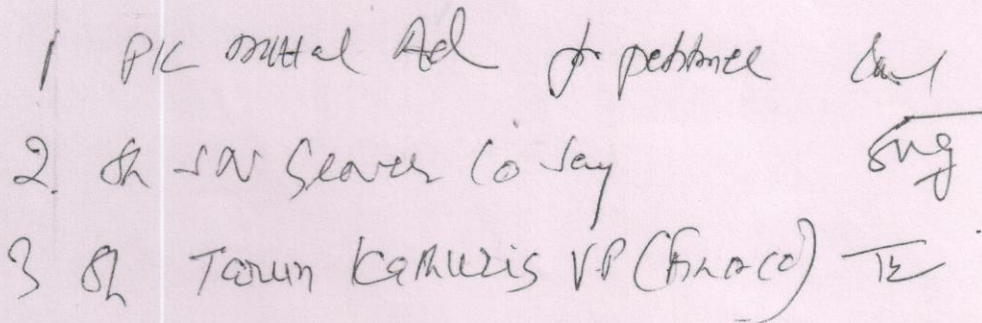 1 PK Mittal Ad for petitioner
2. Sh SN Grover Co Secy
3 Sh Tarun Kathuria VP (Finance)